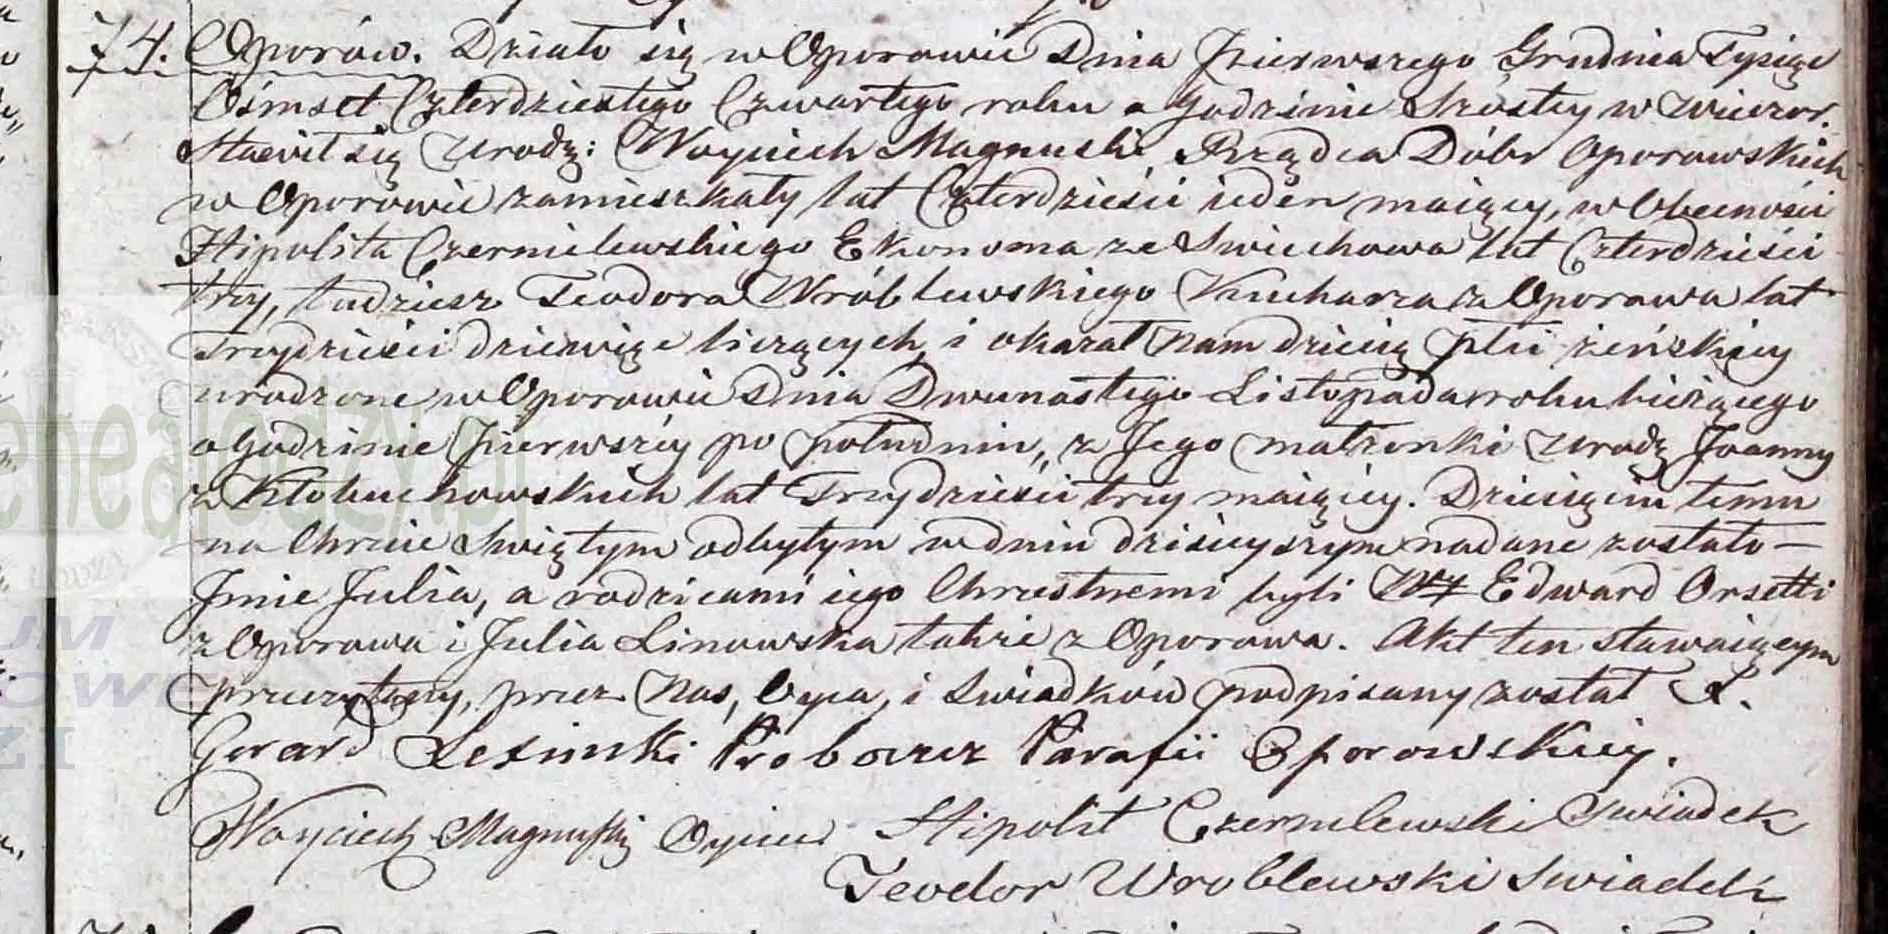 74. Oporów. Działo się w Oporowie Dnia Pierwszego Grudnia Tysiąc
Ośmset Czterdziestego Czwartego roku o Godzinie Szostey w wieczor.
Stawił się Urodz: Woyciech Magnuski Rządca Dóbr Oporowskich
w Oporowie zamieszkały lat Czterdzieści ieden maiący, w Obecności
Hipolita Czermilewskiego Ekonoma ze Swiechowa lat Czterdzieści
trzy, tudziesz Teodora Wróblewskiego Kucharza z Oporowa lat
Trzydzieści dziewięc liczących, i okazał Nam dziecię płci żeńskiey
urodzone w Oporowie Dnia Dwunastego Listopada roku bieżącego
o godzinie Pierwszéy po południu, z Jego małżonki Urodz Joanny
z Kłobuchowskich lat Trzydzieści trzy maiącey. Dziecięciu temu
na Chrzcie Swiętym odbytym w dniu dzisieyszym nadane zostało —
Jmie Julia, a rodzicami iego Chrzestnemi byli Edward Orsetti
z Oporowa i Julia Linowska także z Oporowa. Akt ten stawaiącym
przeczytany, przez Nas, Oyca, i Swiadków podpisany został X.
Gerard Lesinski Proboszcz Parafii Oporowskiey.
Woyciech Magnuski Oyciec Hipolit Czermilewski Swiadek
Teodor Wroblewski Swiadek
enealodzy.pl